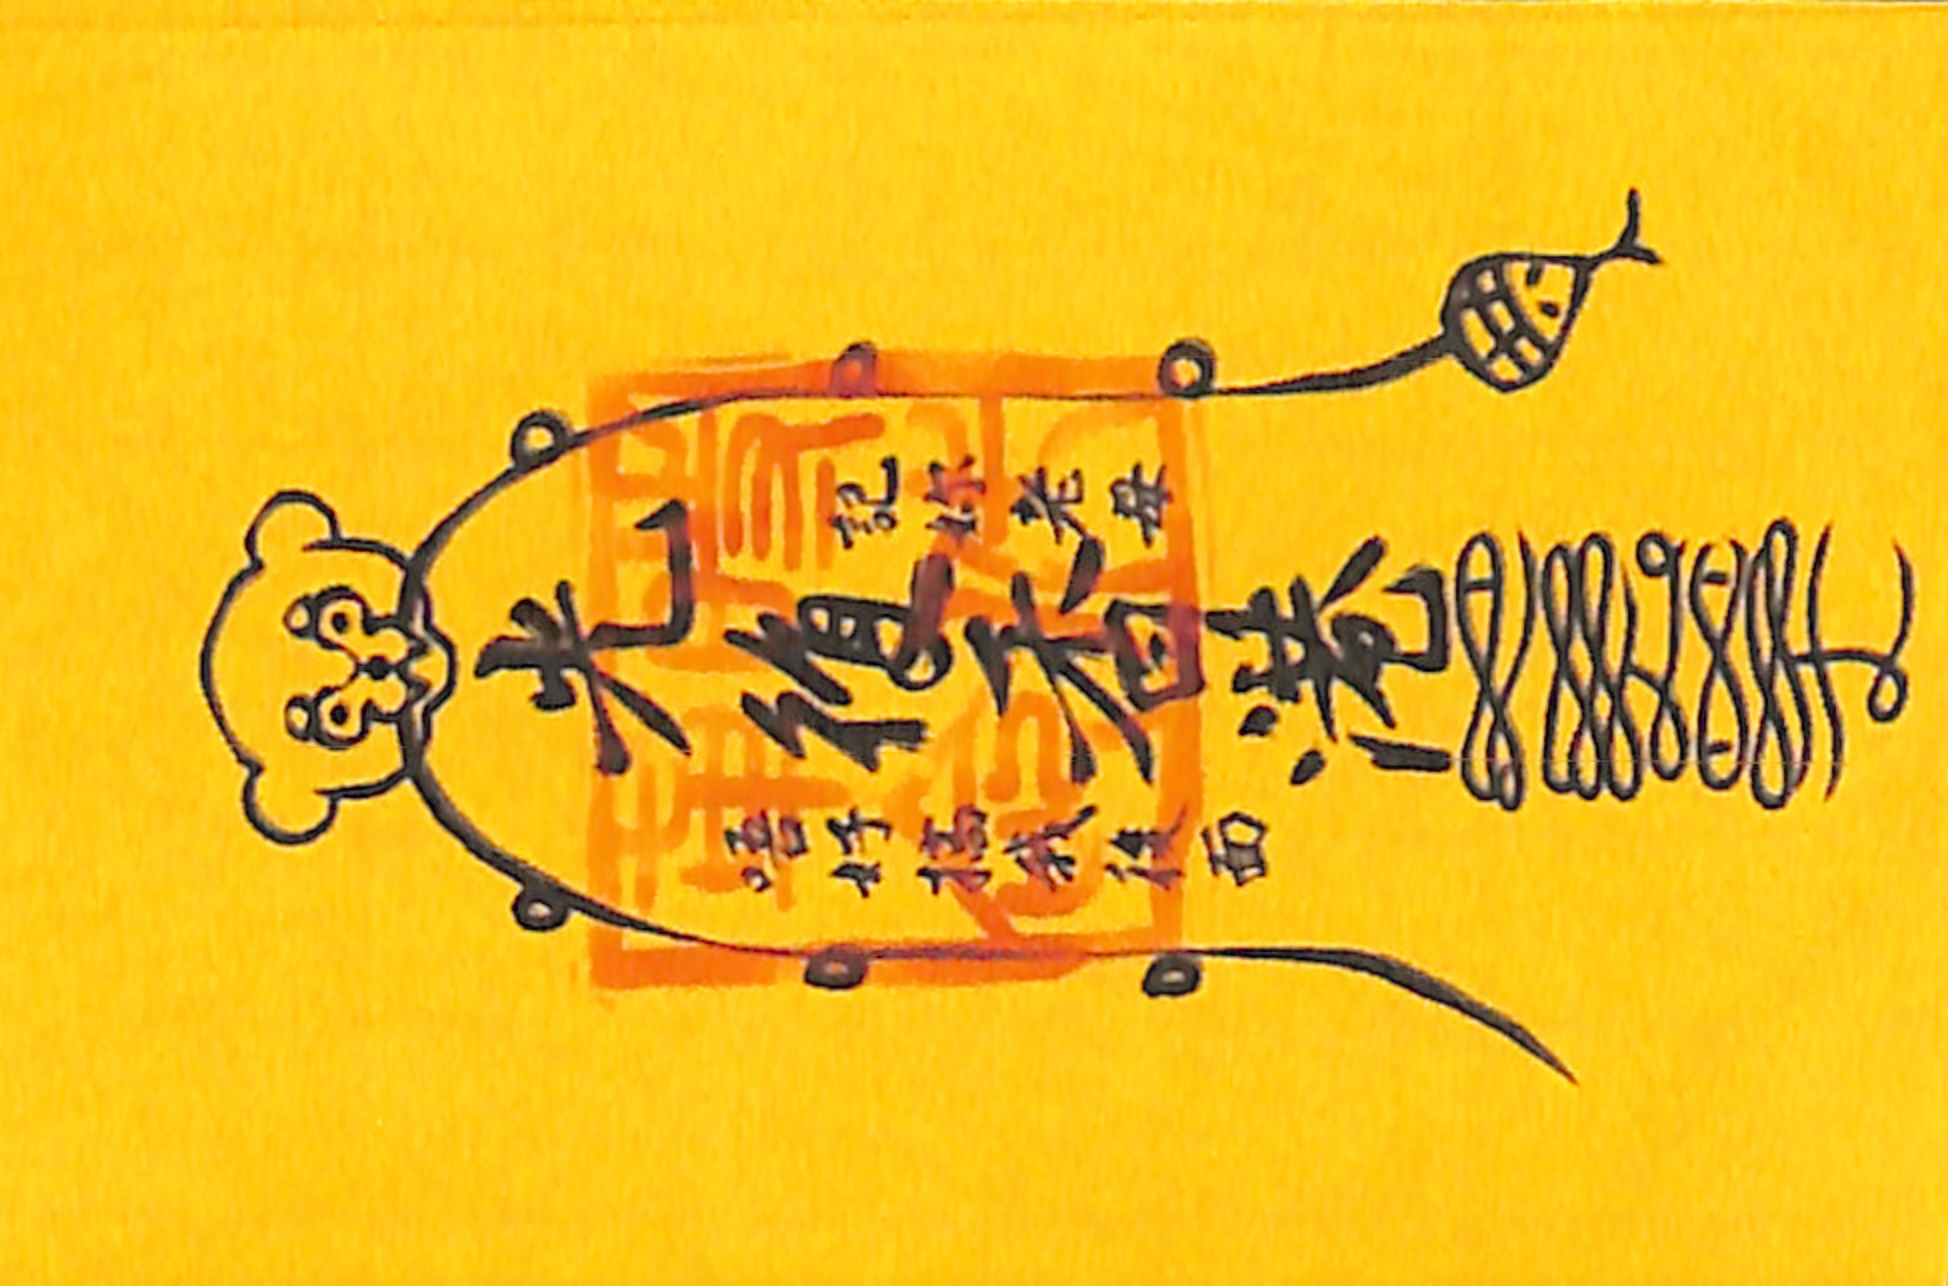 光復香港
記妳老母
唔好搞我後面